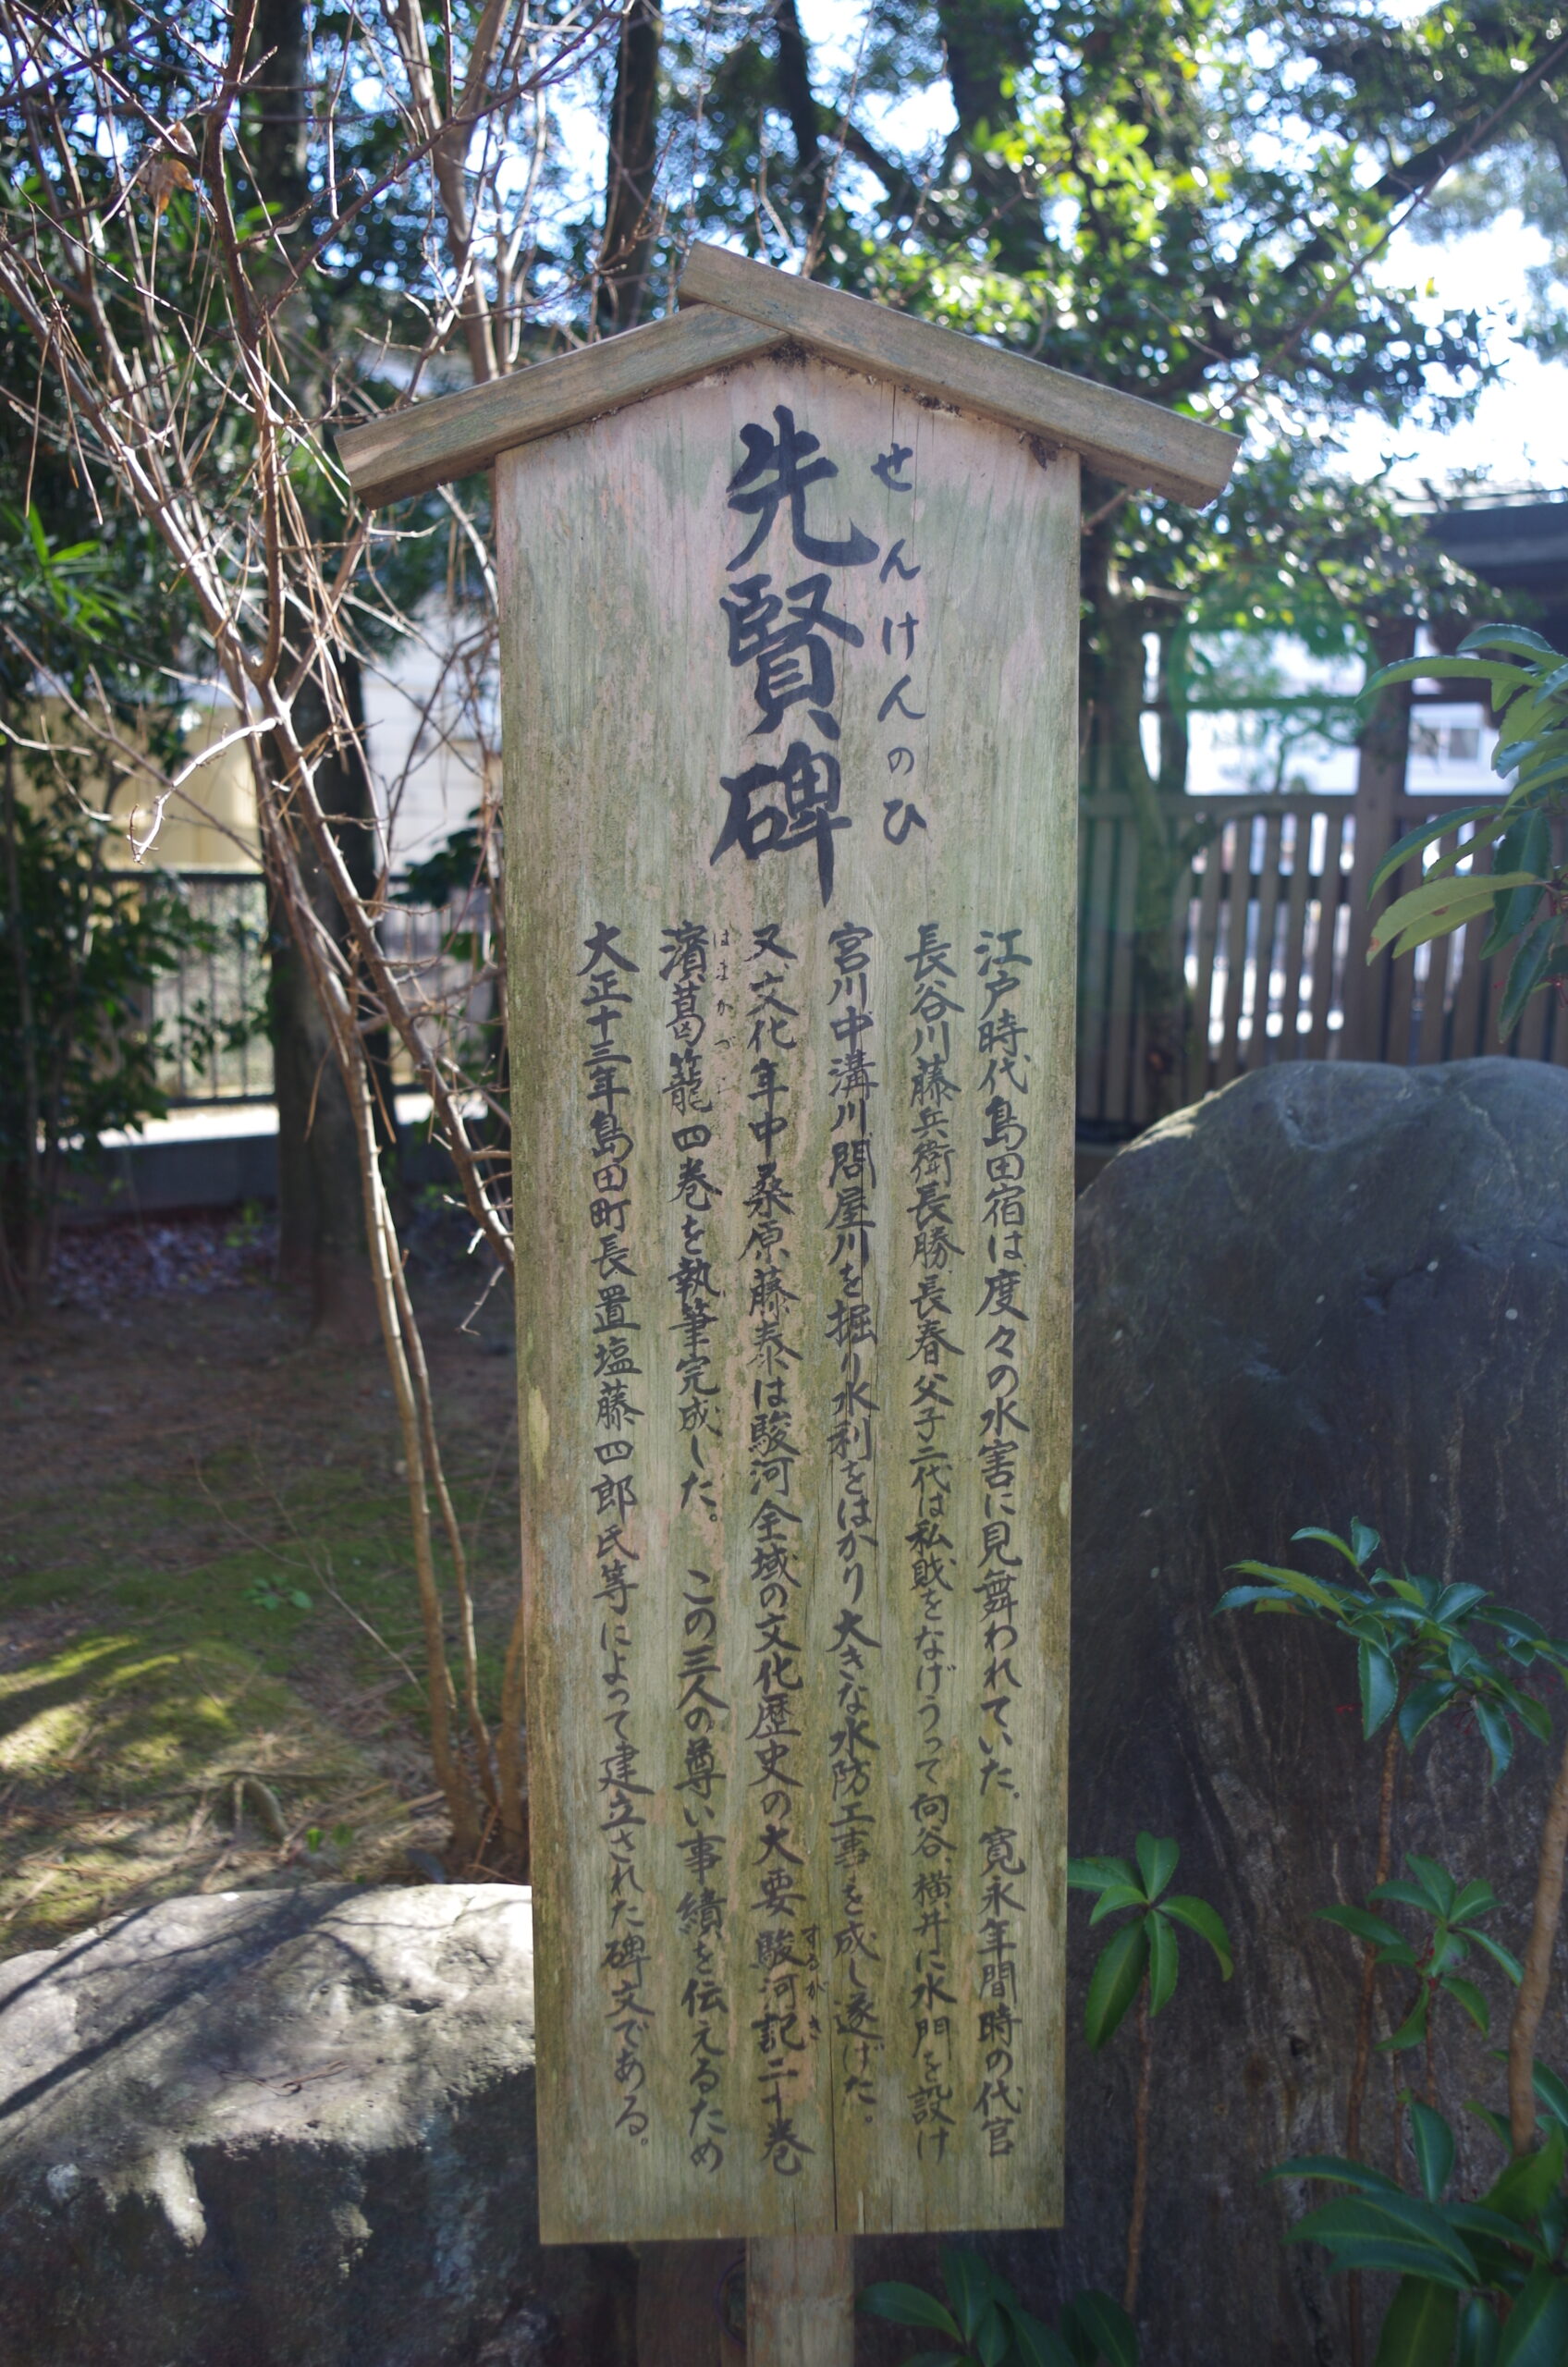 先賢碑
せんけんのひ
江戸時代島田宿は度々の水害に見舞われていた。寛永年間時の代官
長谷川藤兵衛長勝長春父子二代は私戝をなげうって向谷横井に水門を設け
宮川中溝川問屋川を掘り水利をはかり大きな水防工事を成し遂げた。
又文化年中桑原藤泰は駿河全域の文化歴史の大要駿河記二十巻
するがき
濱葛籠四巻を執筆完成した。 この三人の尊い事績を伝えるため
はまかづら
大正十三年島田町長置塩藤四郎氏等によって建立された碑文である。